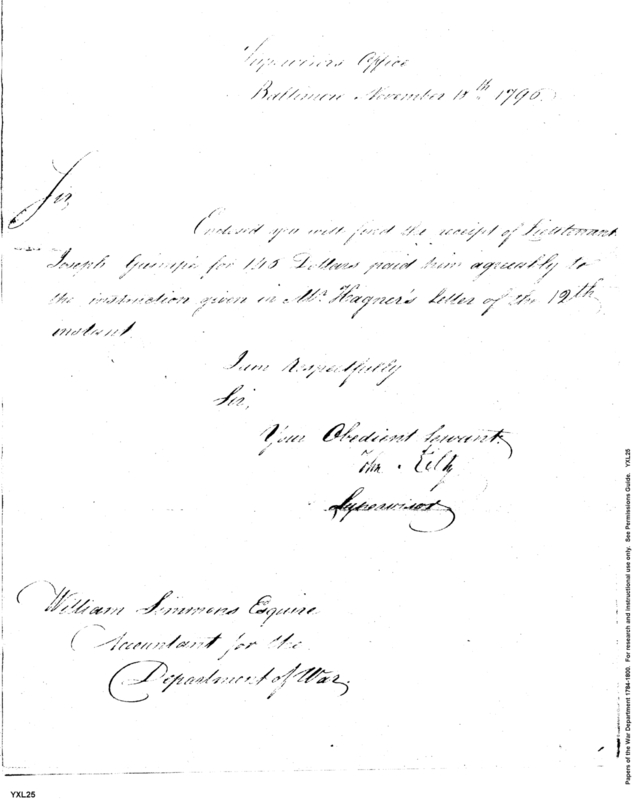 Supervisors Office
Baltimore November 18th 1795.
Sir,
Enclosed you will find the receipt of Lieutenant
Joseph for 145 Dollars paid him agreeably to
the instruction given in Mr. Hagner's Letter of the 12th
instant
I am Respectfully
Sir,
Your Obedient Servant.
Supervisor
William Simmons Esquire
Accountant for the
Department of War.
YXL25
Papers of the War Department 1784-1800. For research and instructional use only. See Permissions Guide. YXL25